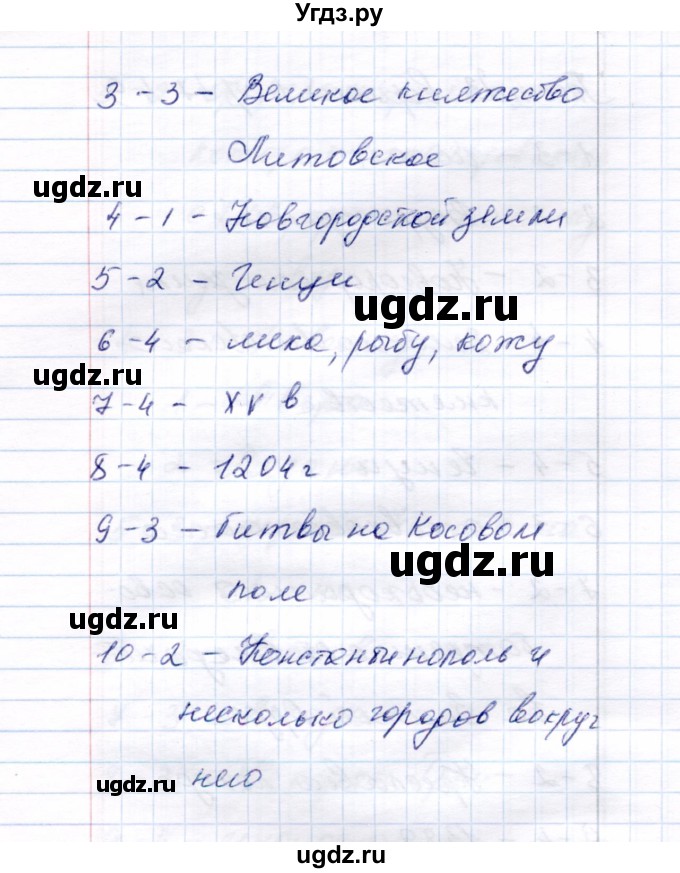 Угдз.ру
3 - 3 - Великое княжество
Литовское
ugdz.ru
4 - 1 - Новгородской земли
5 - 2 - Генуи
ugdz.ru
6 - 4 - меха, рыбу, кожу
ugdz.ru
7 - 4 - XV в
8 - 4 - 1204 г
9 - 3 - Битвы на Косовом
ugdz.ru
поле
ugdz.ru
10 - 2 - Константинополь и
несколько городов вокруг
ugdz.ru
него
ugdz.ru